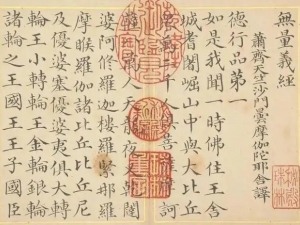 無量義經
蕭齊天竺沙門曇摩伽陀耶舍譯
德行品第一
如是我聞一時佛住王舍
城耆闍崛山中與大比丘
二千人菩訶
萬人天龍夜叉乾闥
婆阿修羅迦樓羅緊那羅
摩睺羅伽諸比丘比丘尼
及優婆塞優婆夷俱大轉
輪王小轉輪王金輪銀輪
諸輪之王國王王子國臣